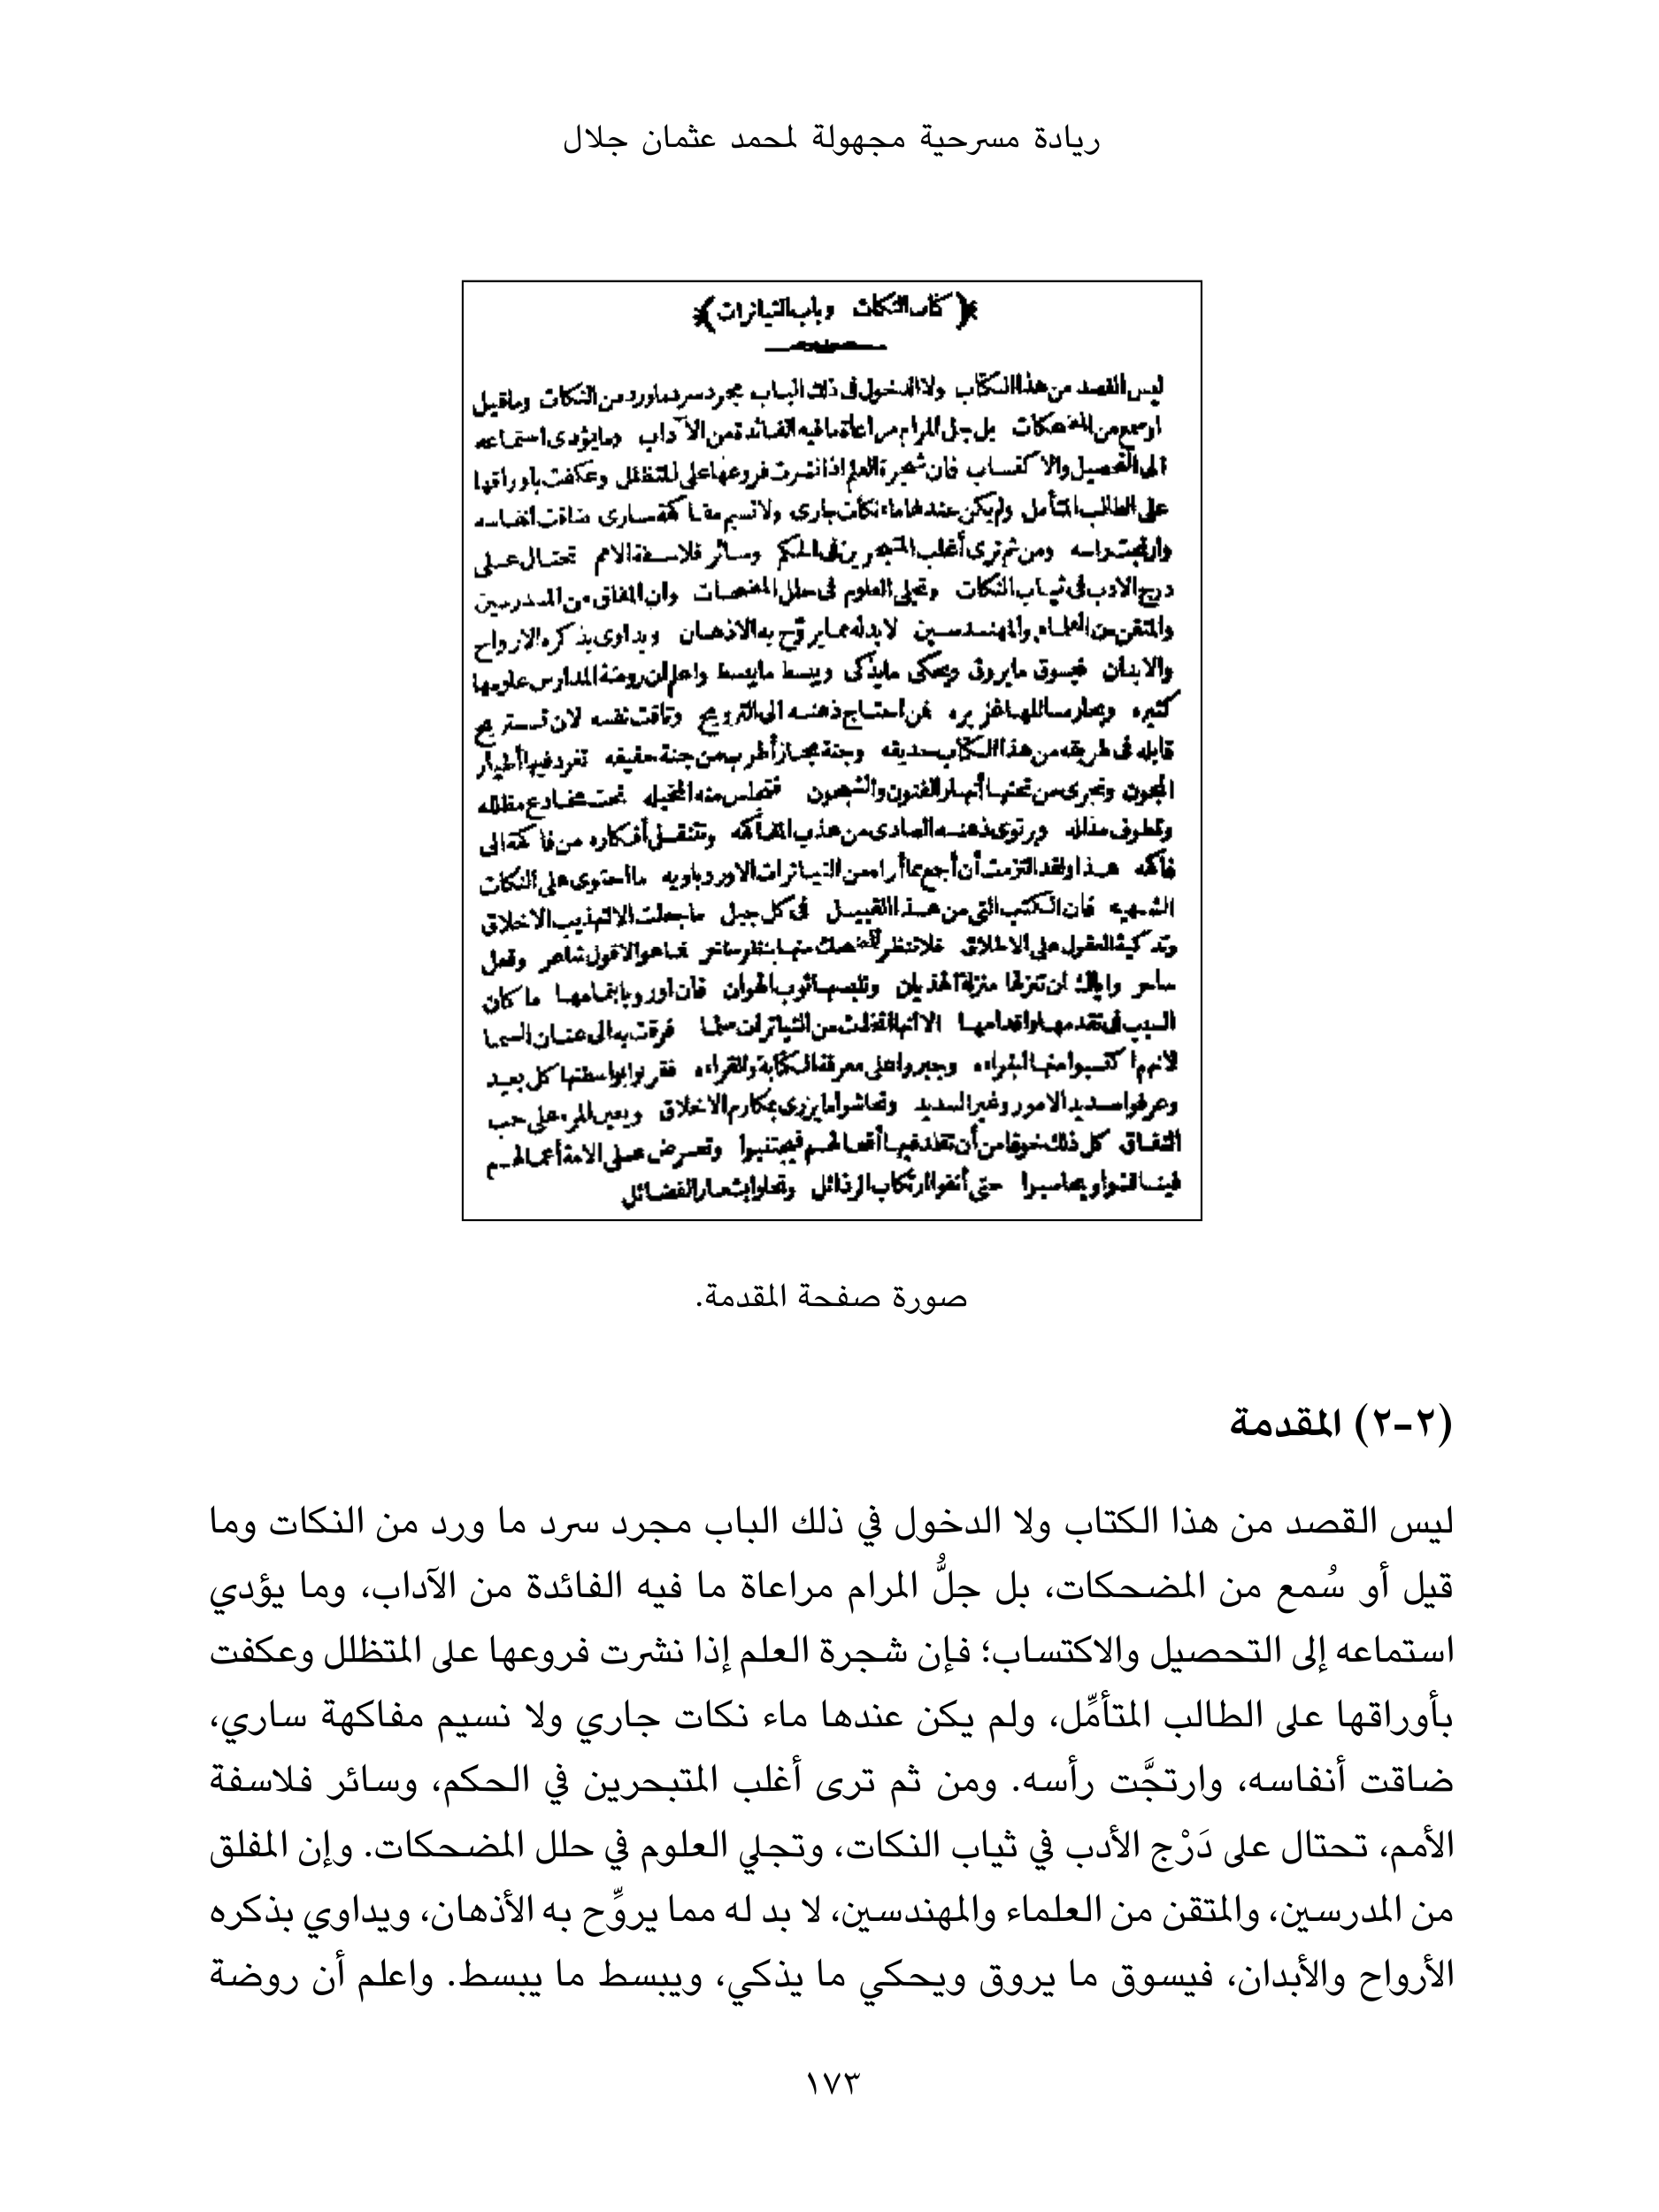 ريادة مسرحية مجهولة لمحمد عثمان جلال
﴿كتاب النكات وباب التياترات﴾
ليس القصد من هذا الكتاب ولا الدخول فى ذلك الباب مجرد سرد ما ورد من النكات وما قيل
او سمع من المضحكات بل جل المرام مراعاة ما فيه الفائدة من الآداب وما يؤدى استماعه
الى التحصيل والاكتساب فان شجرة العلم اذا نشرت فروعها على المتظلل وعكفت باوراقها
على الطالب المتأمل ولم يكن عندها ماء نكات جارى ولا نسيم مفاكهة سارى ضاقت انفاسه
وارتجت راسه ومن ثم ترى أغلب المتبحرين فى الحكم وسائر فلاسفة الامم تحتال على
درج الادب فى ثياب النكات وتجلى العلوم فى حلل المضحكات وان المفلق من المدرسين
والمتقن من العلماء والمهندسين لا بد له مما يروّح به الاذهان ويداوى بذكره الارواح
والابدان فيسوق ما يروق ويحكى ما يذكى ويبسط ما يبسط واعلم ان روضة المدارس علومها
كثيره وبحار مسائلها غزيره فمن احتاج ذهنه الى الترويح وتاقت نفسه لان تستريح
قابله فى طريقه من هذا الكتاب حديقه وجنة مجاز أطرب من جنة حقيقه تغرد فيها أطيار
المجون وتجرى من تحتها أنهار الفنون والشجون فتجلس منه المخيله تحت مخادع مظلله
وقطوف مذلله ويرتوى ذهنه الصادى من عذب المفاكهه وتتنقل أفكاره من فاكهة الى
فاكهه هذا ولقد التزمت أن أجمع مما أراه من التياترات الاوروباويه ما احتوى على النكات
الشهيه فان الكتب التى من هذا القبيل فى كل جيل ما جعلت الا لتهذيب الاخلاق
وتذكية العقول على الاطلاق فلا تنظر لمضحك منها بنظر ساخر فما هو الا قول شاعر وفعل
ساحر واياك ان تنزلها منزلة الهذيان وتلبسها ثوب الهوان فان اوروبا بتمامها ما كان
السبب فى تقدمها واقدامها الا انها اتخذت من التياترات سلما فرقت به الى عنان السما
لانهم اكتسبوا منها البراءه وجبروا على معرفة الكتابة والقراءه فقربوا بواسطتها كل بعيد
وعرفوا سديد الامور وغير السديد وتحاشوا ما يزرى بمكارم الاخلاق ويعين المرء على حب
النفاق كل ذلك خوفا من أن تقلد فيها أفعالهم فيجتنبوا وتعرض على الامة أعمالهم
فيناقشوا ويحاسبوا حتى أنفوا ارتكاب الرذائل وتحلوا بشعار الفضائل
صورة صفحة المقدمة.
(٢-٢) المقدمة
ليس القصد من هذا الكتاب ولا الدخول في ذلك الباب مجرد سرد ما ورد من النكات وما
قيل أو سُمع من المضحكات، بل جلُّ المرام مراعاة ما فيه الفائدة من الآداب، وما يؤدي
استماعه إلى التحصيل والاكتساب؛ فإن شجرة العلم إذا نشرت فروعها على المتظلل وعكفت
بأوراقها على الطالب المتأمِّل، ولم يكن عندها ماء نكات جاري ولا نسيم مفاكهة ساري،
ضاقت أنفاسه، وارتجَّت رأسه. ومن ثم ترى أغلب المتبحرين في الحكم، وسائر فلاسفة
الأمم، تحتال على دَرْج الأدب في ثياب النكات، وتجلي العلوم في حلل المضحكات. وإن المفلق
من المدرسين، والمتقن من العلماء والمهندسين، لا بد له مما يروِّح به الأذهان، ويداوي بذكره
الأرواح والأبدان، فيسوق ما يروق ويحكي ما يذكي، ويبسط ما يبسط. واعلم أن روضة
١٧٣